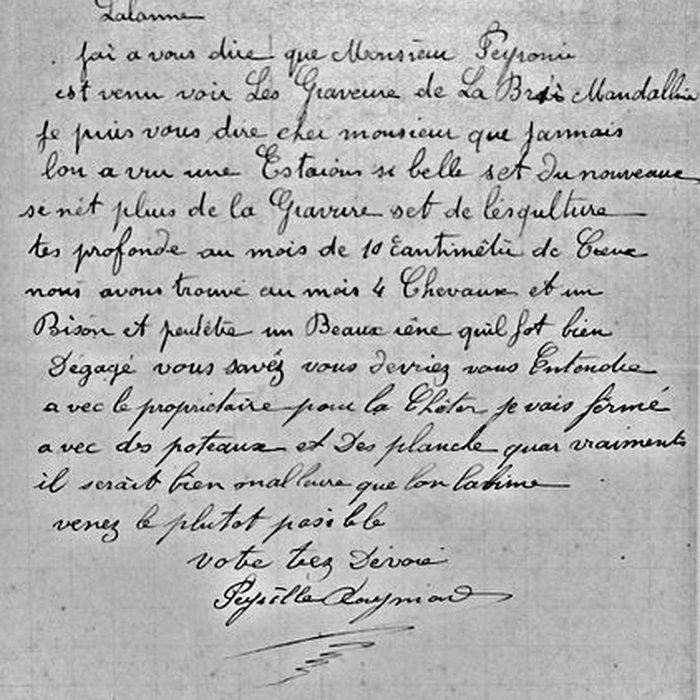 Lalanne
jai a vous dire que Monsieur Peyronie
est venu voir Les Graveure de La Mandallin
Je puis vous dire cher monsieur que Jammais
lon a vru une Estaions si belle set du nouveaux
se nét pluis de la Gravure set de lésqulture
tes profonde au mois de 10 Cantimétre de Creux
nous avons trouvé au mois 4 Chevaux et un
Bison et peutétre un Beaux réne quil fot bien
Dégagé vous savéz vous devriez vous Entendre
avec le propriétaire pour la Chéter je vais férmé
avec des poteaux et Des planche quar vraiments
il serait bien mallaure que lon labime
venez le plutot posible
votre trez Dévoué
Peyrille Raymond